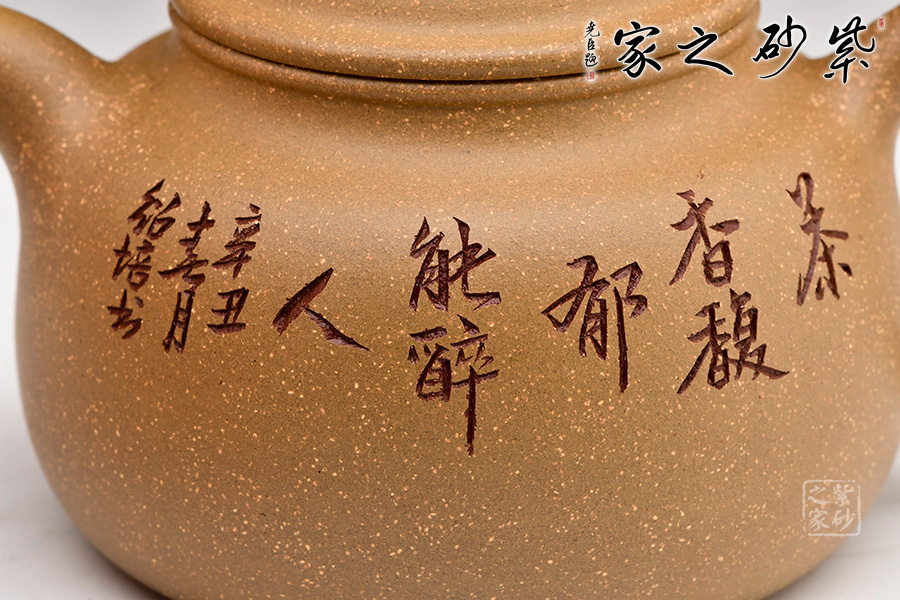 紫砂之家
尧臣题
茶
香馥
郁
能醉
人
辛丑
春月
绍培书
紫砂
之家